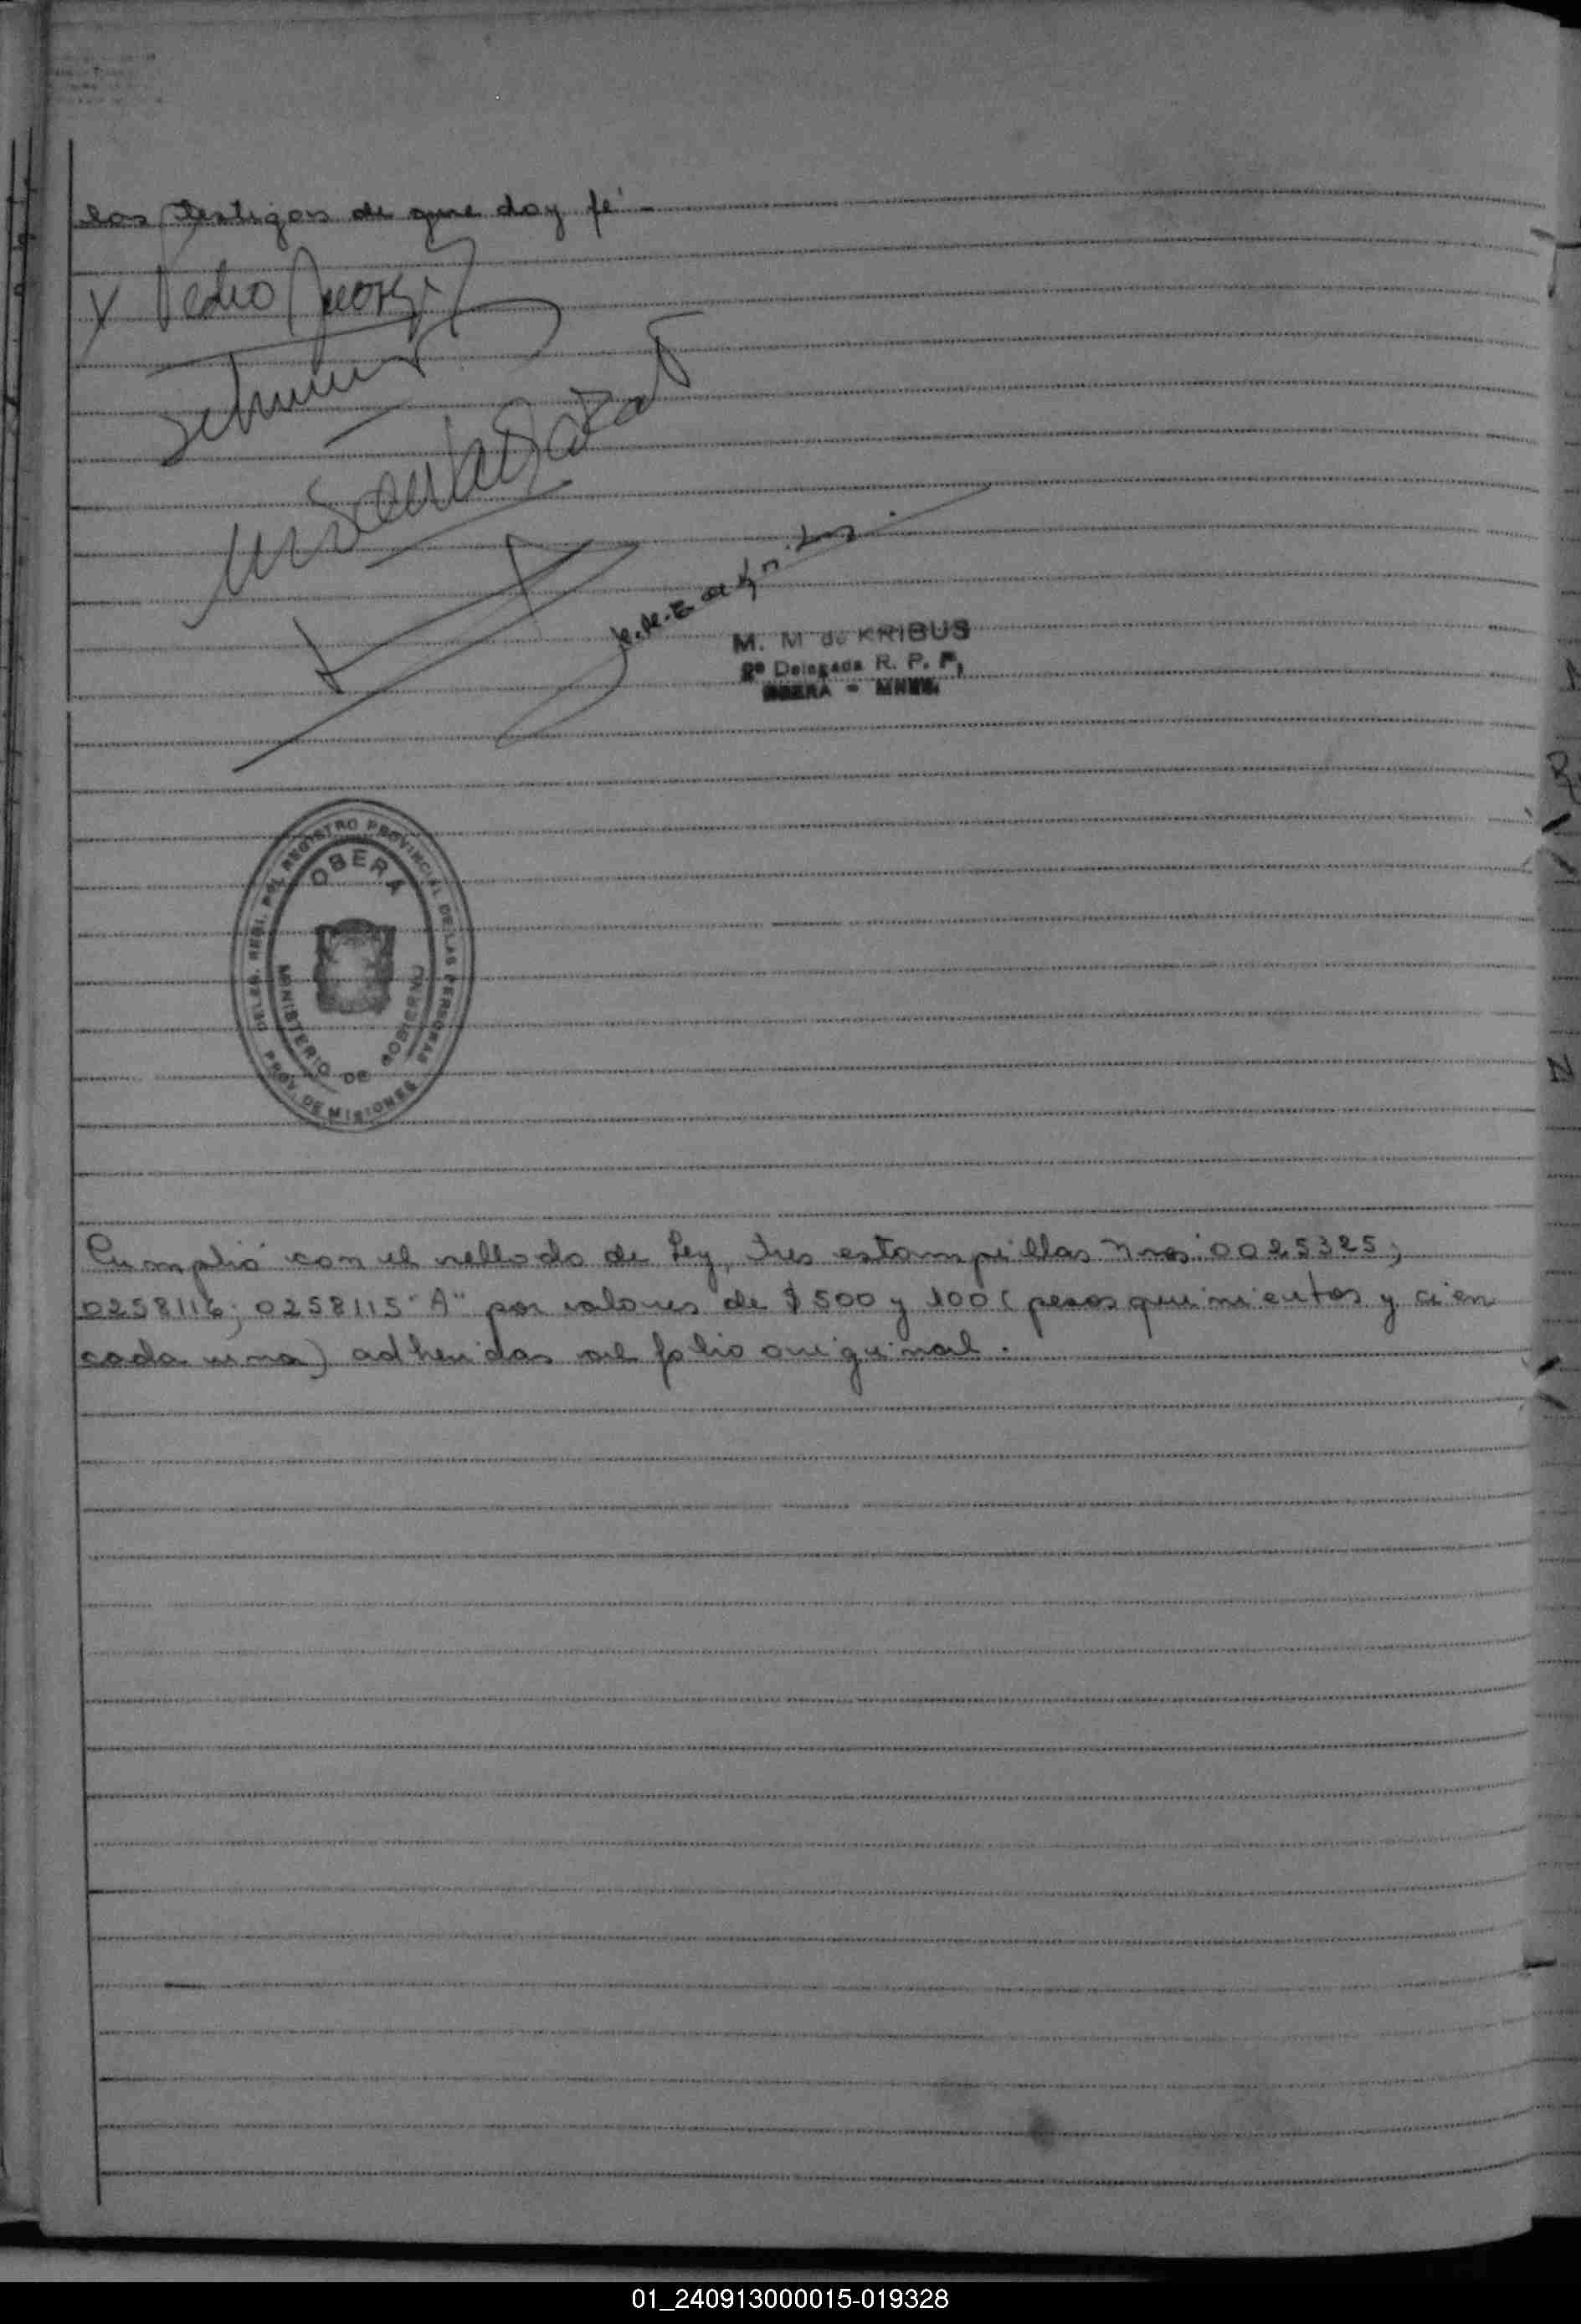 los testigos de que doy fé -
X Pedro
M. M de KRIBUS
2º Delegada R. P. P.
OBERA - MNES.
DELEG. REGI. DEL REGISTRO PROVINCIAL DE LAS PERSONAS
OBERA
MINISTERIO DE GOBIERNO
PROV. DE MISIONES
Cumplió con el sellado de Ley, tres estampillas Nros 0025325;
0258116; 0258115 "A" por valores de $ 500 y 100 (pesos quinientos y cien
cada una) adheridas al folio original.
01_240913000015-019328